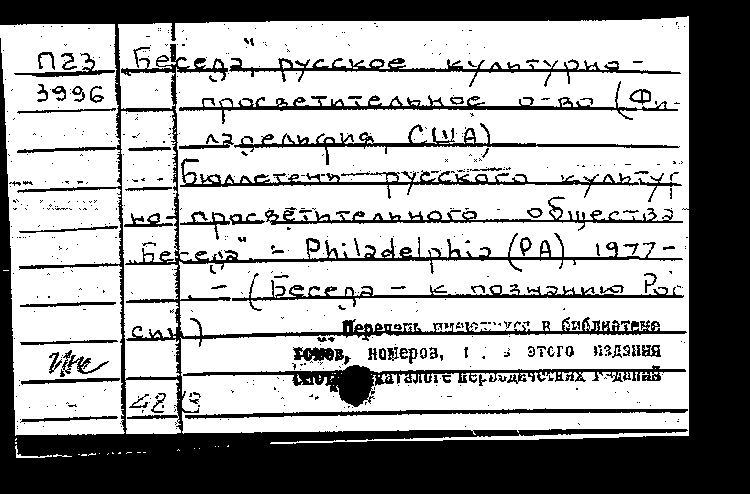 П23 Беседа", русское культурно-
3996 просветительное о-во (Фи-
ладельфия, США)
Бюллетень русского культур
но-просветительного общества
„Беседа". - Philadelphia (PA), 1977-
. - (Беседа - к познанию Рос
сии)
Перечень имеющихся в библиотеке
томов, номеров, в этого издания
каталоге периодических изданий
48